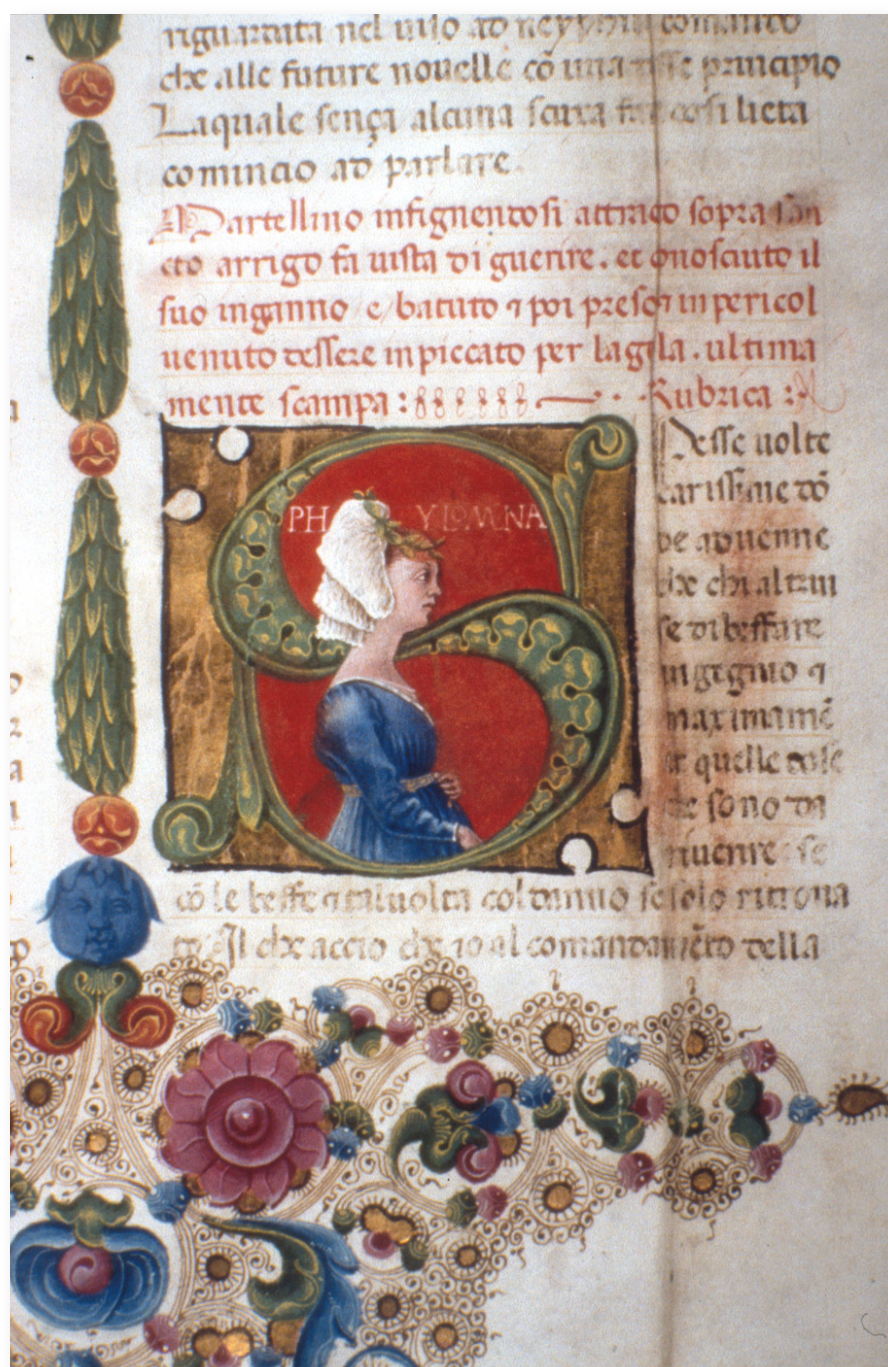 riguardata nel uiso ad neyphile comando
che alle future nouelle cō una desse principio
Laquale sença alcuna scusa far cosi lieta
comincio ad parlare.
Martellino infignendosi attracto sopra san
cto arrigo fa uista di guerire. et conosciuto il
suo inganno e batuto ⁊ poi preso ⁊ in pericol
uenuto dessere inpiccato per la gola. ultima
mente scampa: Rubrica:
PHYLOMNA
Desse uolte
carissime dō
ne aduenne
che chi altrui
se di beffare
ingegnio ⁊
maximamē
te quelle cose
che sono da
riuerire se
cō le beffe ⁊ taluolta col danno se solo ritroua
to. Il che accio che io al comandamēto della